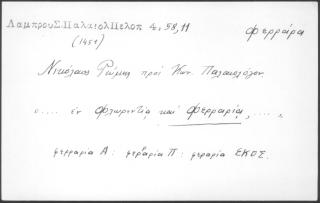 Λαμπρου Σ. Παλαιολ Πελοπ 4, 58, 11 φερράρα
(1451)
Νικόλαος πρὸς Κων. Παλαιολόγον
ο.... ἐν Φλωρεντίᾳ καὶ Φερραρίᾳ, ....,
φερραρια Α: φεραρια Π: φεραρια ΕΚΟΣ.